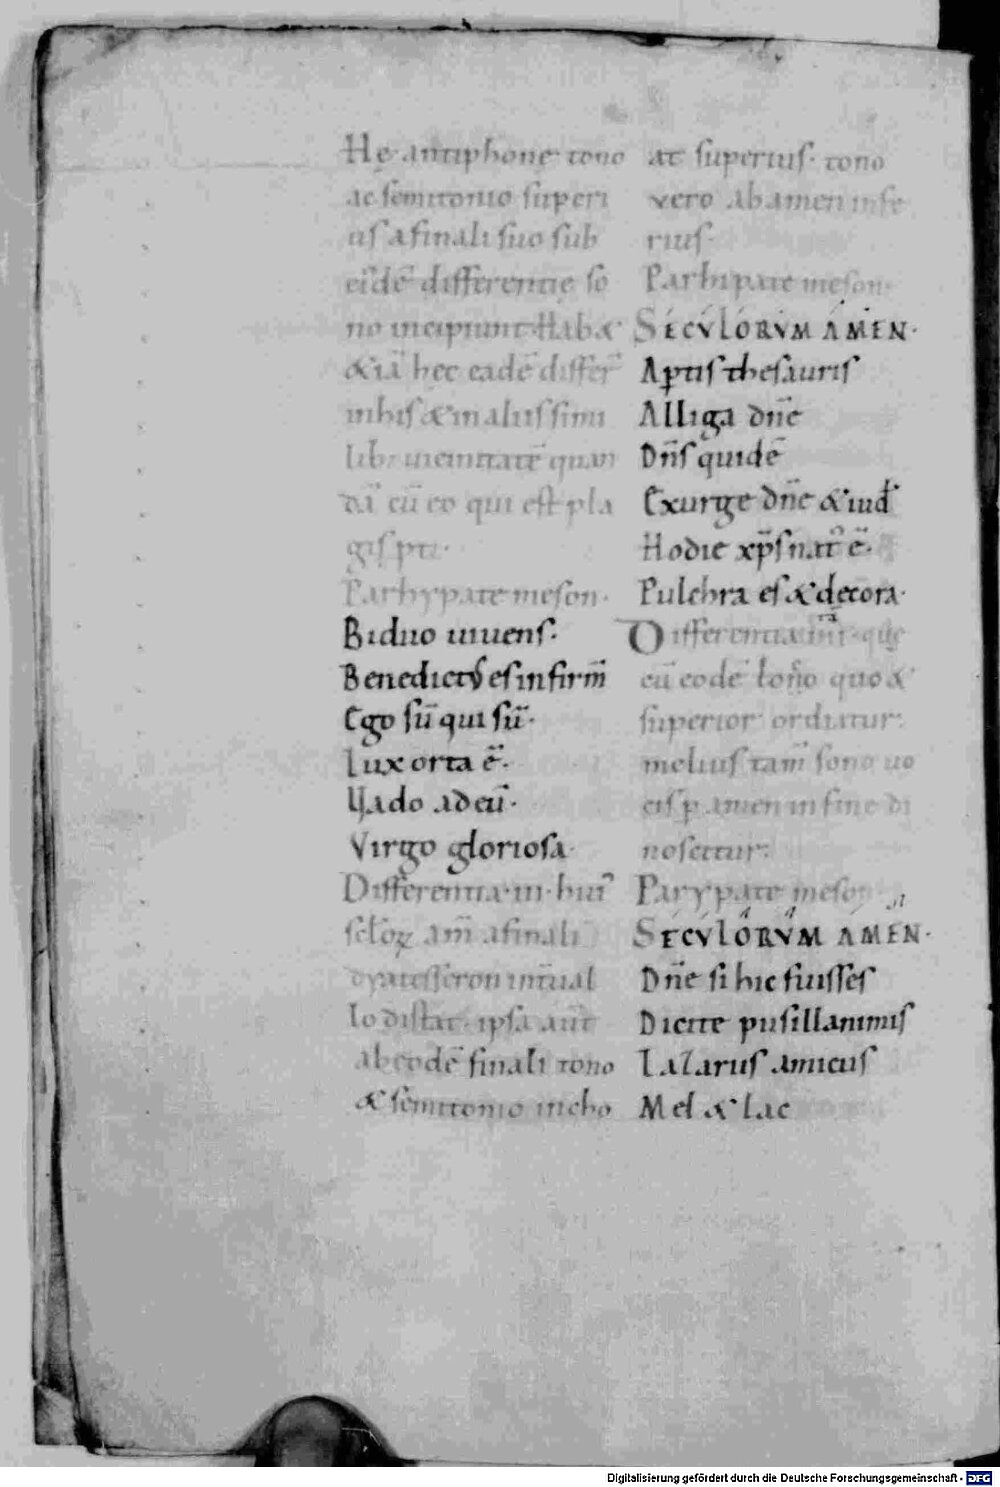 Hę antiphonę tono
ac semitonio superi
us a finali suo sub
eidē differentie so
no incipiunt. Hab&
&iā hec eadē differ̄
in his & in aliis simi
lib; uicinitatē quan
dā cū eo qui est pla
gis pti.
Parhypate meson.
Biduo uiuens.
Benedictꝰ es in firm̄
Ego sū qui sū.
Lux orta ē.
Uado ad eū.
Virgo gloriosa.
Differentia .iii. huiꝰ
sclōꝝ am̄ a finali
dyatesseron int̄ual
lo distat. ipsa aut̄
ab eodē finali tono
& semitonio incho
at superius. tono
vero ab amen infe
rius.
Parhipate meson.
SECVLORVM AMEN.
Aptis thesauris
Alliga dn̄e
Dn̄s quidē
Exurge dn̄e & iud
Hodie xp̄s natꝰ ē.
Pulchra es & decora.
Differentia .iiii. que
cū eodē tono quo &
superior orditur.
melius tam̄ sono uo
cis p amen in fine di
noscitur.
Parypate meson
SECVLORVM AMEN.
Dn̄e si hic fuisses
Dicite pusillanimis
Lazarus amicus
Mel & lac
Digitalisierung gefördert durch die Deutsche Forschungsgemeinschaft - DFG